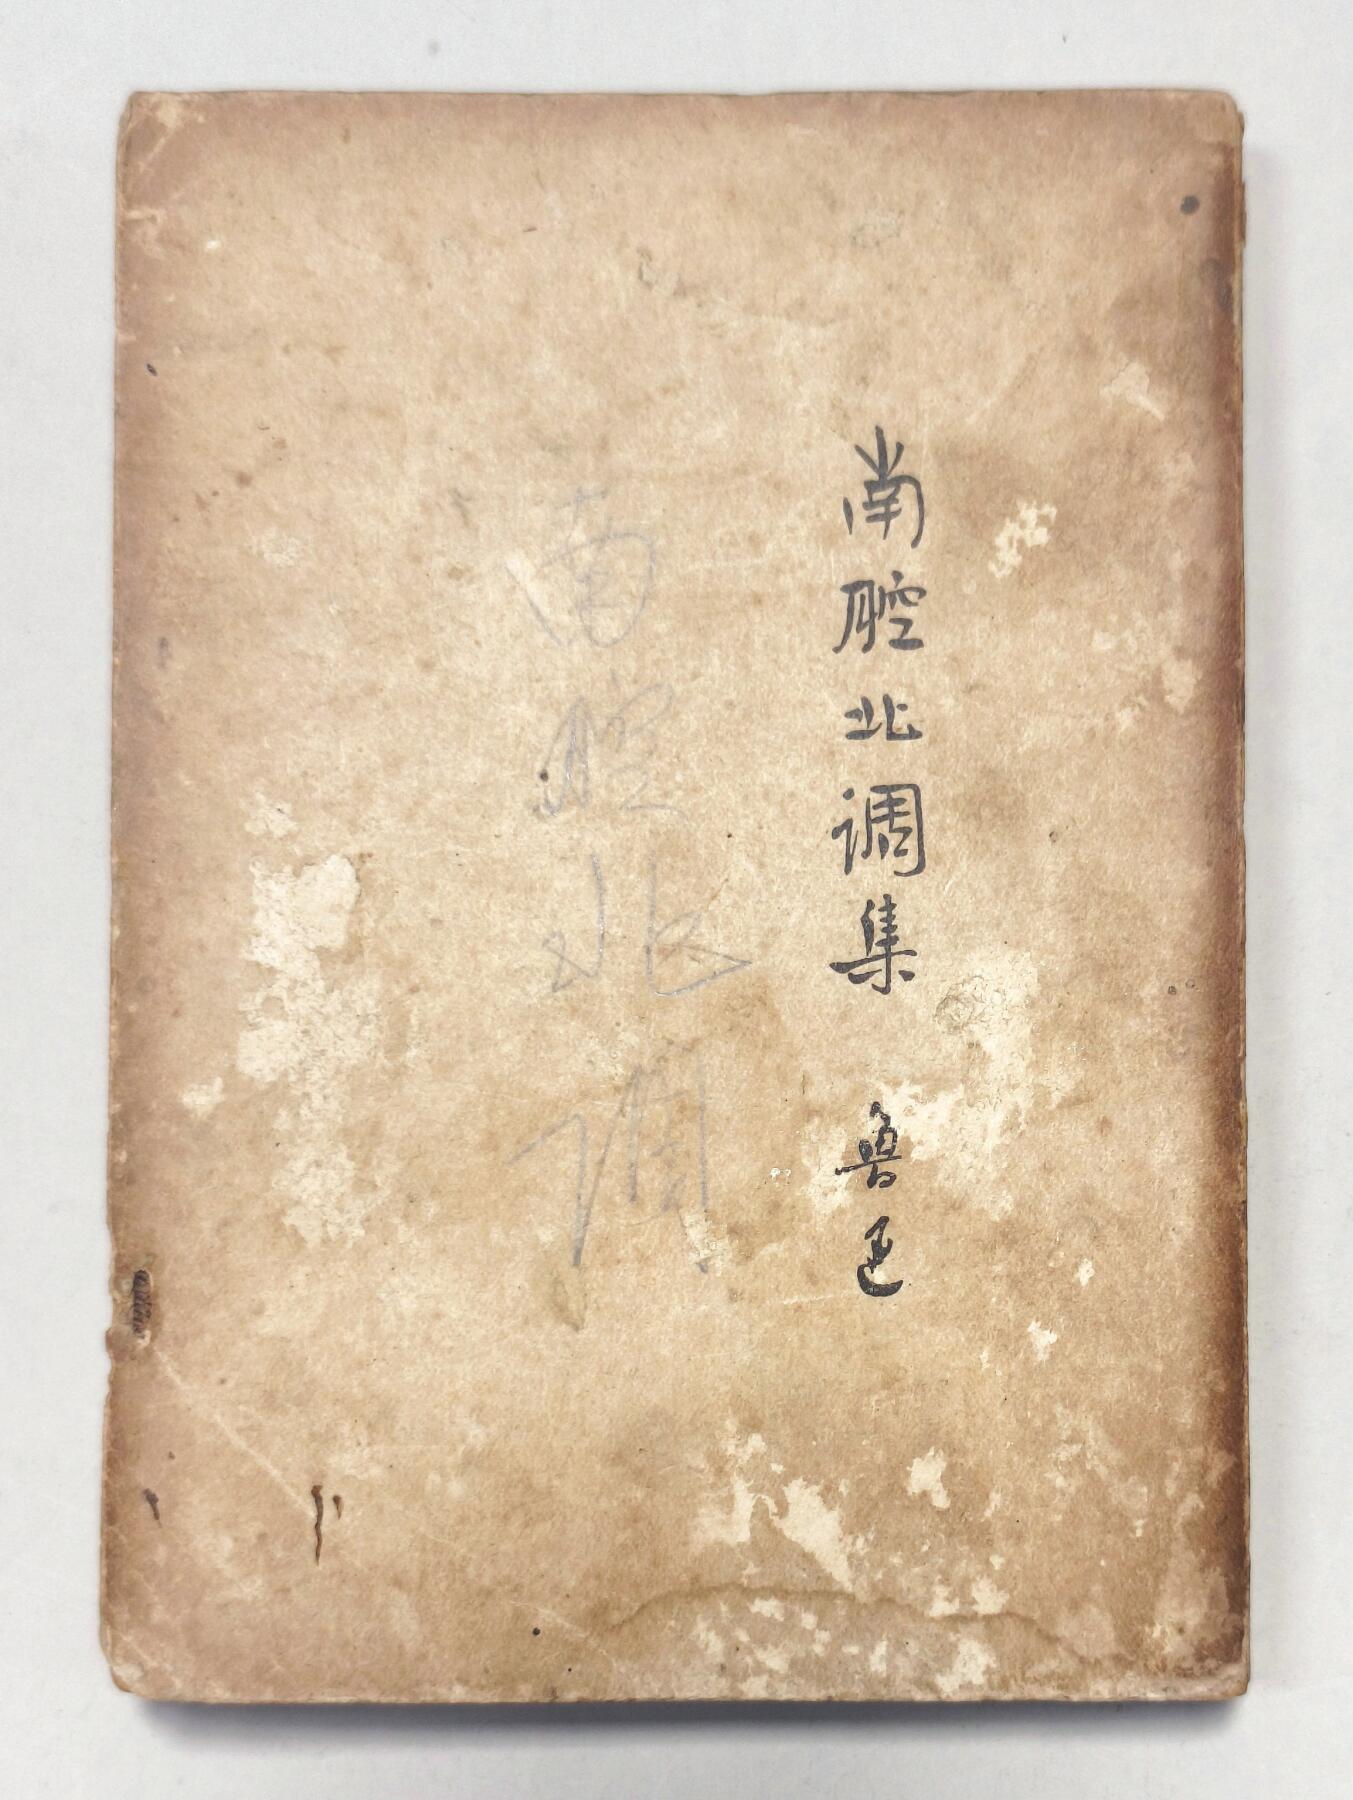 南腔北调集
鲁迅
南腔北调